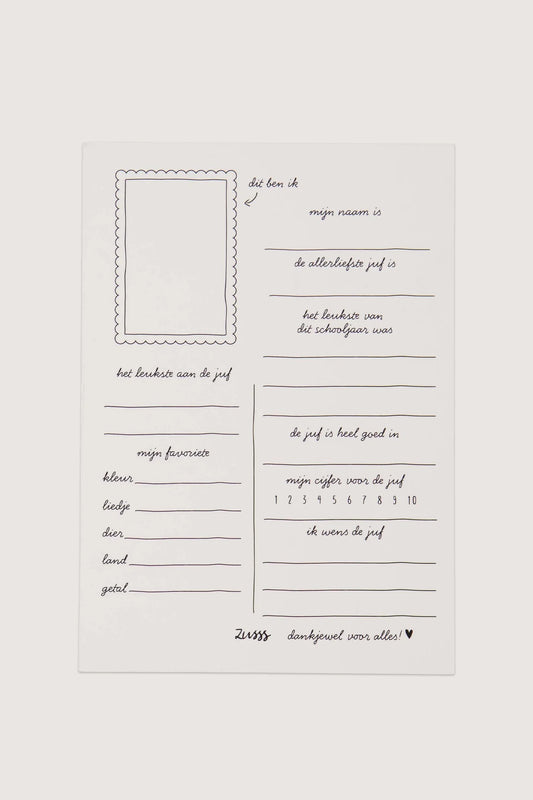 dit ben ik
mijn naam is
de allerliefste juf is
het leukste van
dit schooljaar was
het leukste aan de juf
mijn favoriete
kleur
liedje
dier
land
getal
de juf is heel goed in
mijn cijfer voor de juf
1 2 3 4 5 6 7 8 9 10
ik wens de juf
Zusss dankjewel voor alles! ♥